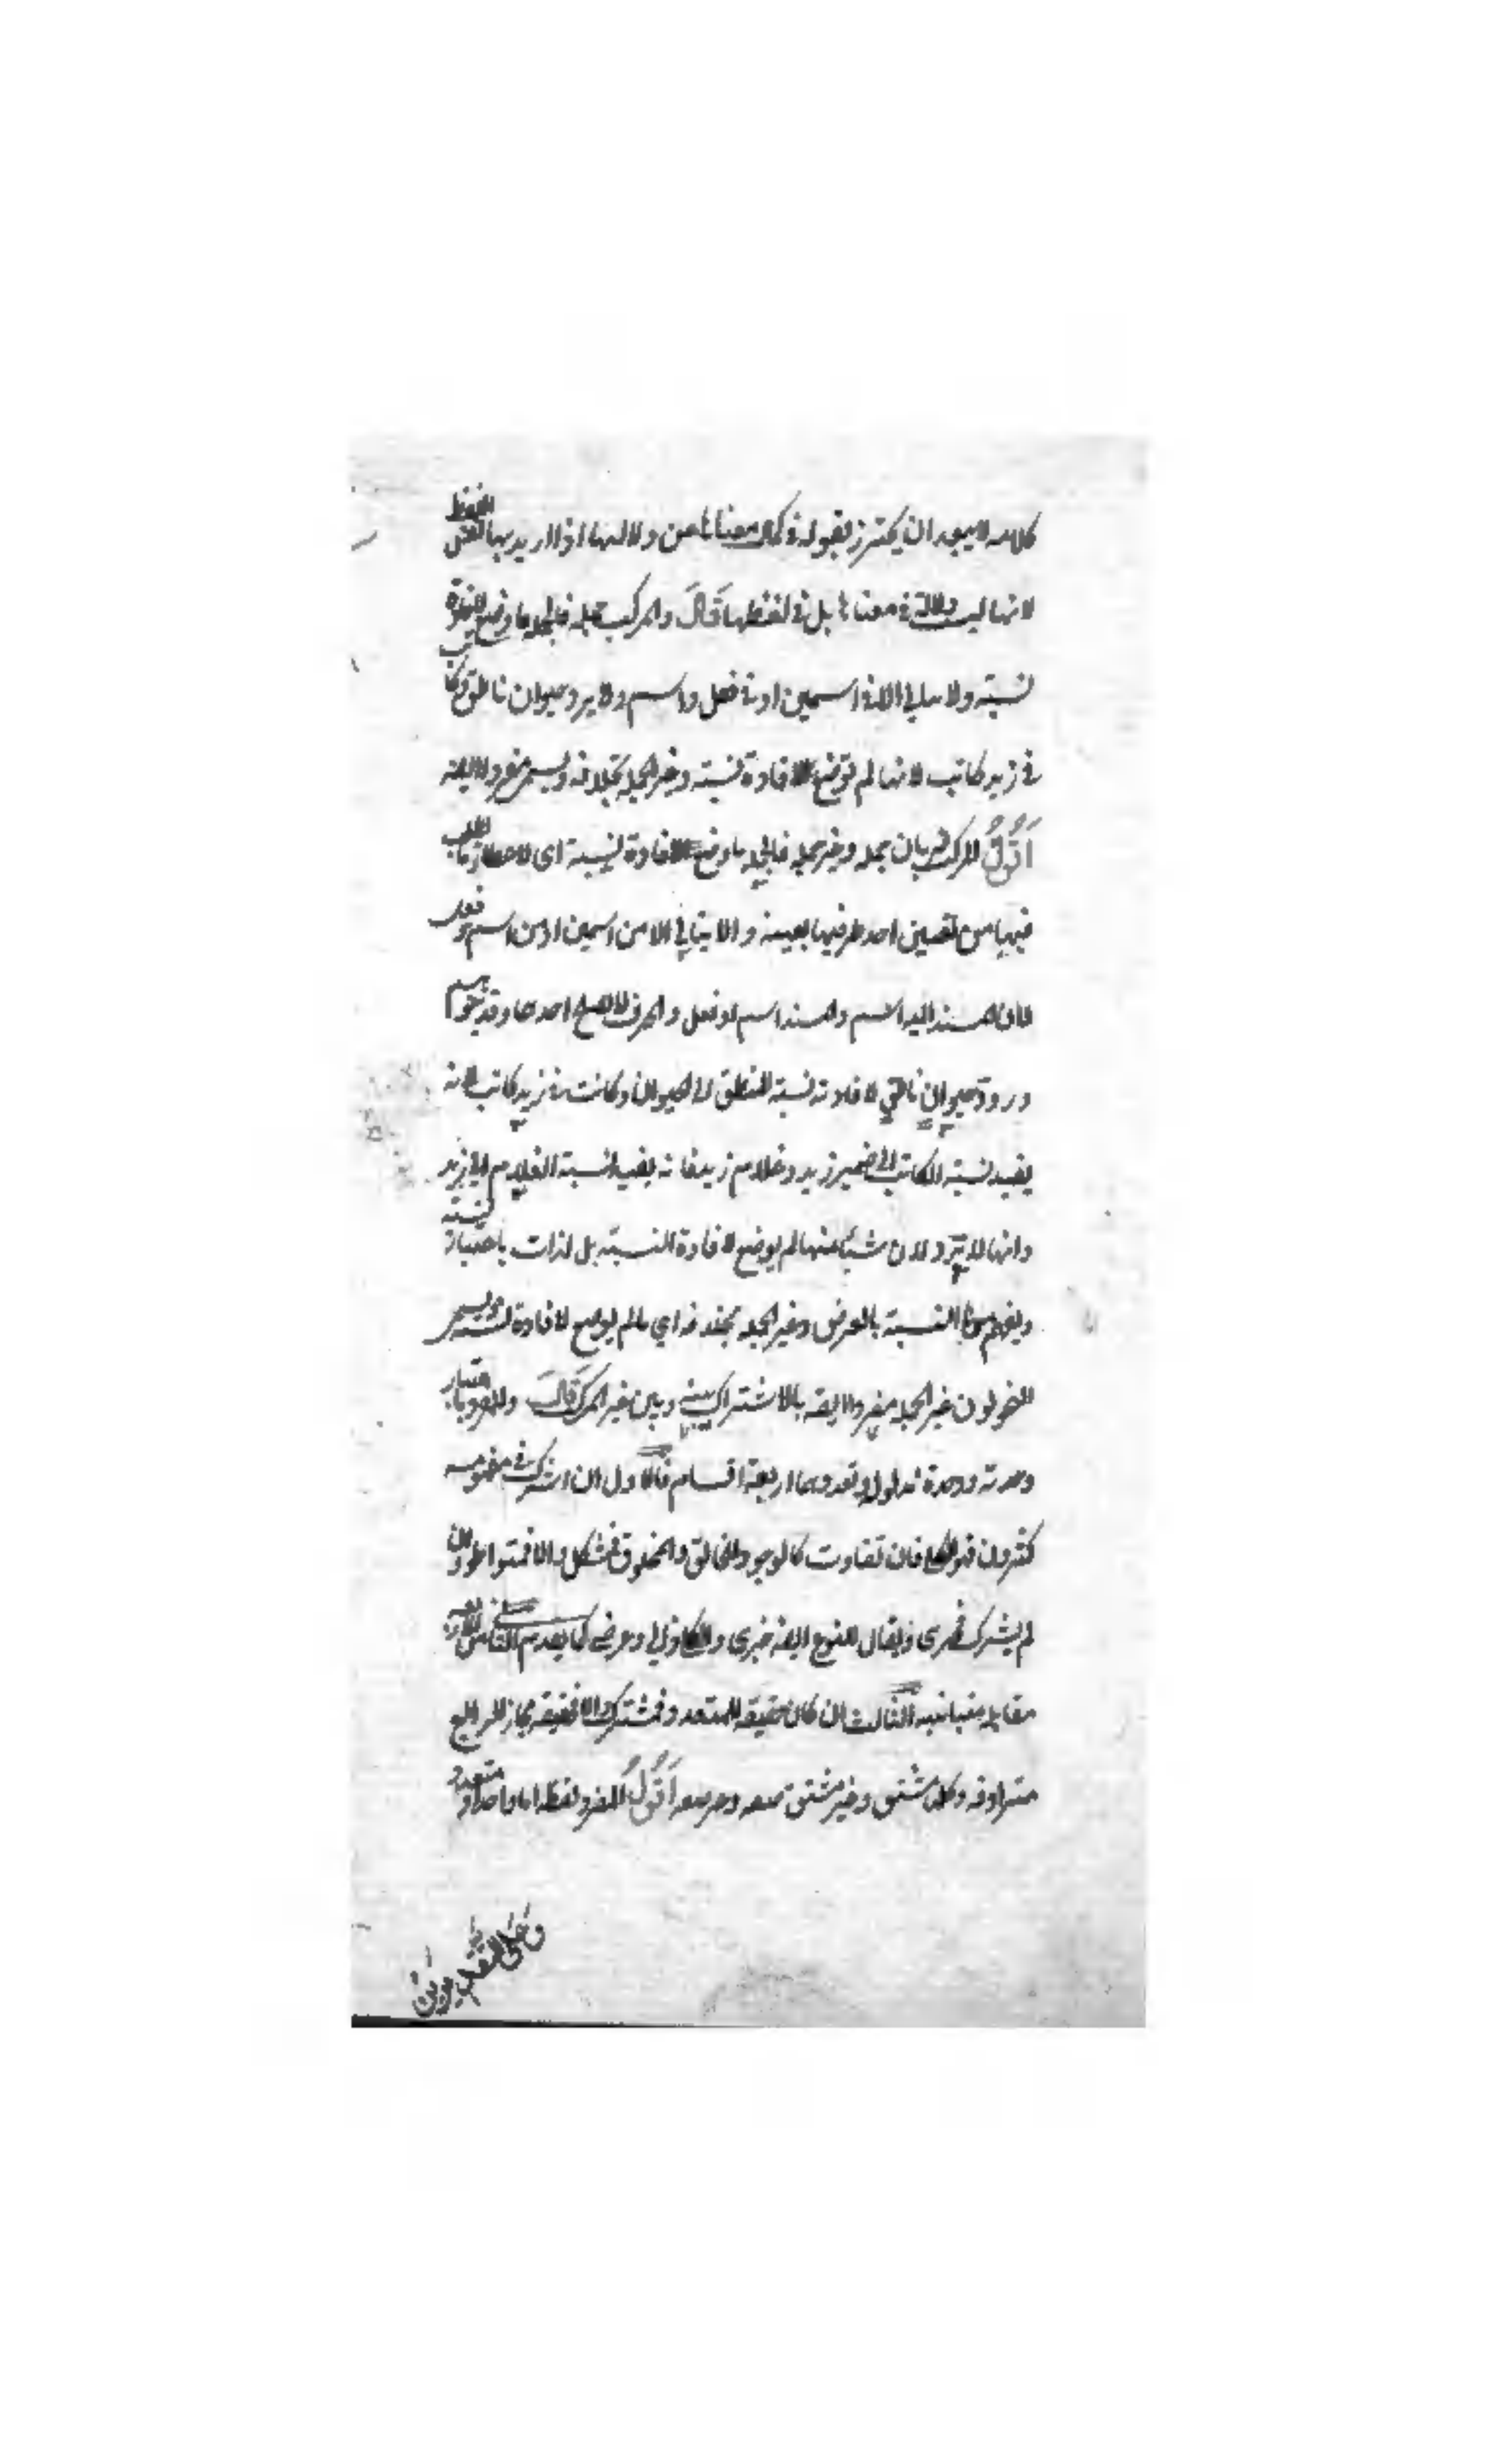 كلامه لا يبعد ان يحترز بقوله في كمال معناها عن دلالتها اذا اريد بها اللفظ
لانها ليست دلالة في معناها بل في لفظها قال والمركب جملة فالجملة ما وضع لافادة
نسبته ولا يتاتى الا في اسمين او في فعل واسم ولا يرد حيوان ناطق وكاتب
في زيد كاتب لانها لم توضع لافادة نسبته وغير الجملة بخلافه ويسمى مفردا ايضه
اقول المركب ضربان جملة وغير جملة فالجملة ما وضع لافادة نسبة اى لاعطاء
فيها من تعيين احد طرفيها بعينه ولا يتاتى الا من اسمين او من اسم وفعل
لان المسند اليه اسم والمسند اسم او فعل والحرف لا يصلح احدهما وقد
ورود حيوان ناطق لافادته نسبة النطق الى الحيوان وكاتب في زيد كاتب لانه
يفيد نسبته الكاتب الى ضمير زيد وغلام زيد فانه يفيد نسبة الغلام الى زيد
وانها لا ترد لان شيئا منها لم يوضع لافادة النسبة بل لذات باعتبار نسبته
ويفهم منها النسبة بالعرض وغير الجملة بخلافه اي ما لم يوضع لافادة نسبته ويسمى
النحويون غير الجملة مفردا ايضه بالاشتراك بينه وبين غير المركب قال وللمفرد باعتبار
وحدته ووحدة مدلوله وتعددهما اربعة اقسام فالاول ان اشترك في مفهومه
كثيرون فهو الكلي فان تفاوت كالوجود للخالق والمخلوق فمشكل والا فمتواطؤ وان
لم يشترك فجزى ويقال للنوع ايضه جزى والكلي ذاتي وعرضي كما تقدم الثاني من الاربعة
مقابلة متباينة الثالث ان كان حقيقة للمتعدد فمشترك والا فحقيقة ومجاز الرابع
مترادفة وكلها مشتق وغير مشتق صفة وغير صفة اقول المفرد لفظه اما واحد او متعدد
وعلى التقديرين